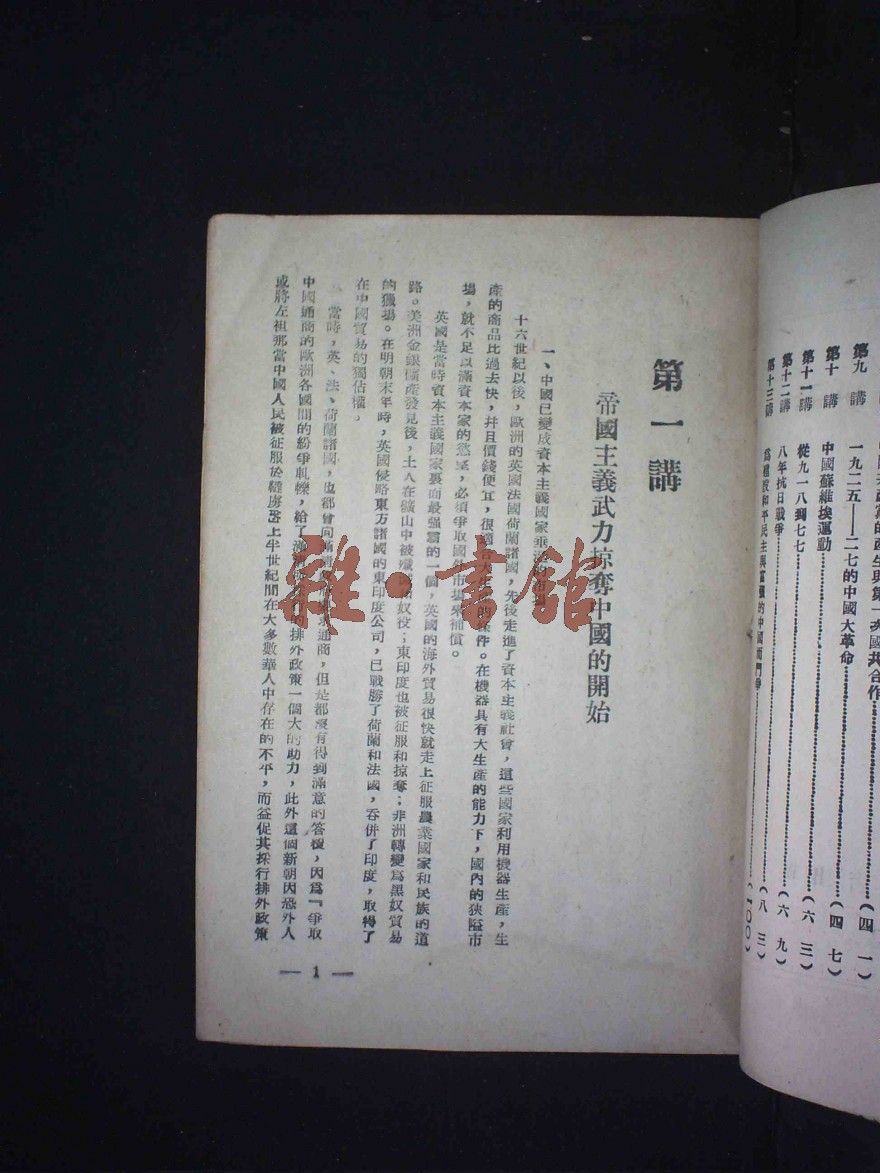 第九講
一九二五——二七的中國大革命……(四一)
第十講
中國蘇維埃運動……(四七)
第十一講
從九一八到七七……(六三)
第十二講
八年抗日戰爭……(六九)
第十三講
的中國而鬥爭……(八三)
(一〇〇)
第一講
帝國主義武力掠奪中國的開始
一、中國已變成資本主義國家
十六世紀以後,歐洲的英國法國荷蘭諸國,先後走進了資本主義社會,這些國家利用機器生產,生
產的商品比過去快,幷且價錢便宜,很條件。在機器具有大生產的能力下,國內的狹隘市
場,就不足以滿資本家的慾望,必須爭取國外市場來補償。
英國是當時資本主義國家裏面最强霸的一個,英國的海外貿易很快就走上征服農業國家和民族的道
路。美洲金銀礦產發見後,土人在礦山中被奴役;東印度也被征服和掠奪;非洲轉變爲黑奴貿易
的獵場。在明朝末年時,英國侵略東方諸國的東印度公司,已戰勝了荷蘭和法國,吞併了印度,取得了
在中國貿易的獨佔權。
當時,英、法、荷蘭諸國,也都曾向滿清通商,但是都沒有得到滿意的答覆,因爲『爭取
中國通商的歐洲各國間的紛爭軋轢,給了行的排外政策一個大的助力,此外這個新朝因恐外人
或將左袒那當中國人民被征服於韃虜後上半世紀間在大多數華人中存在的不平,而益促其採行排外政策
— 1 —
雜·書館